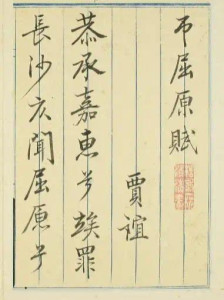 弔屈原賦
賈誼
恭承嘉惠兮竢罪
長沙仄聞屈原兮